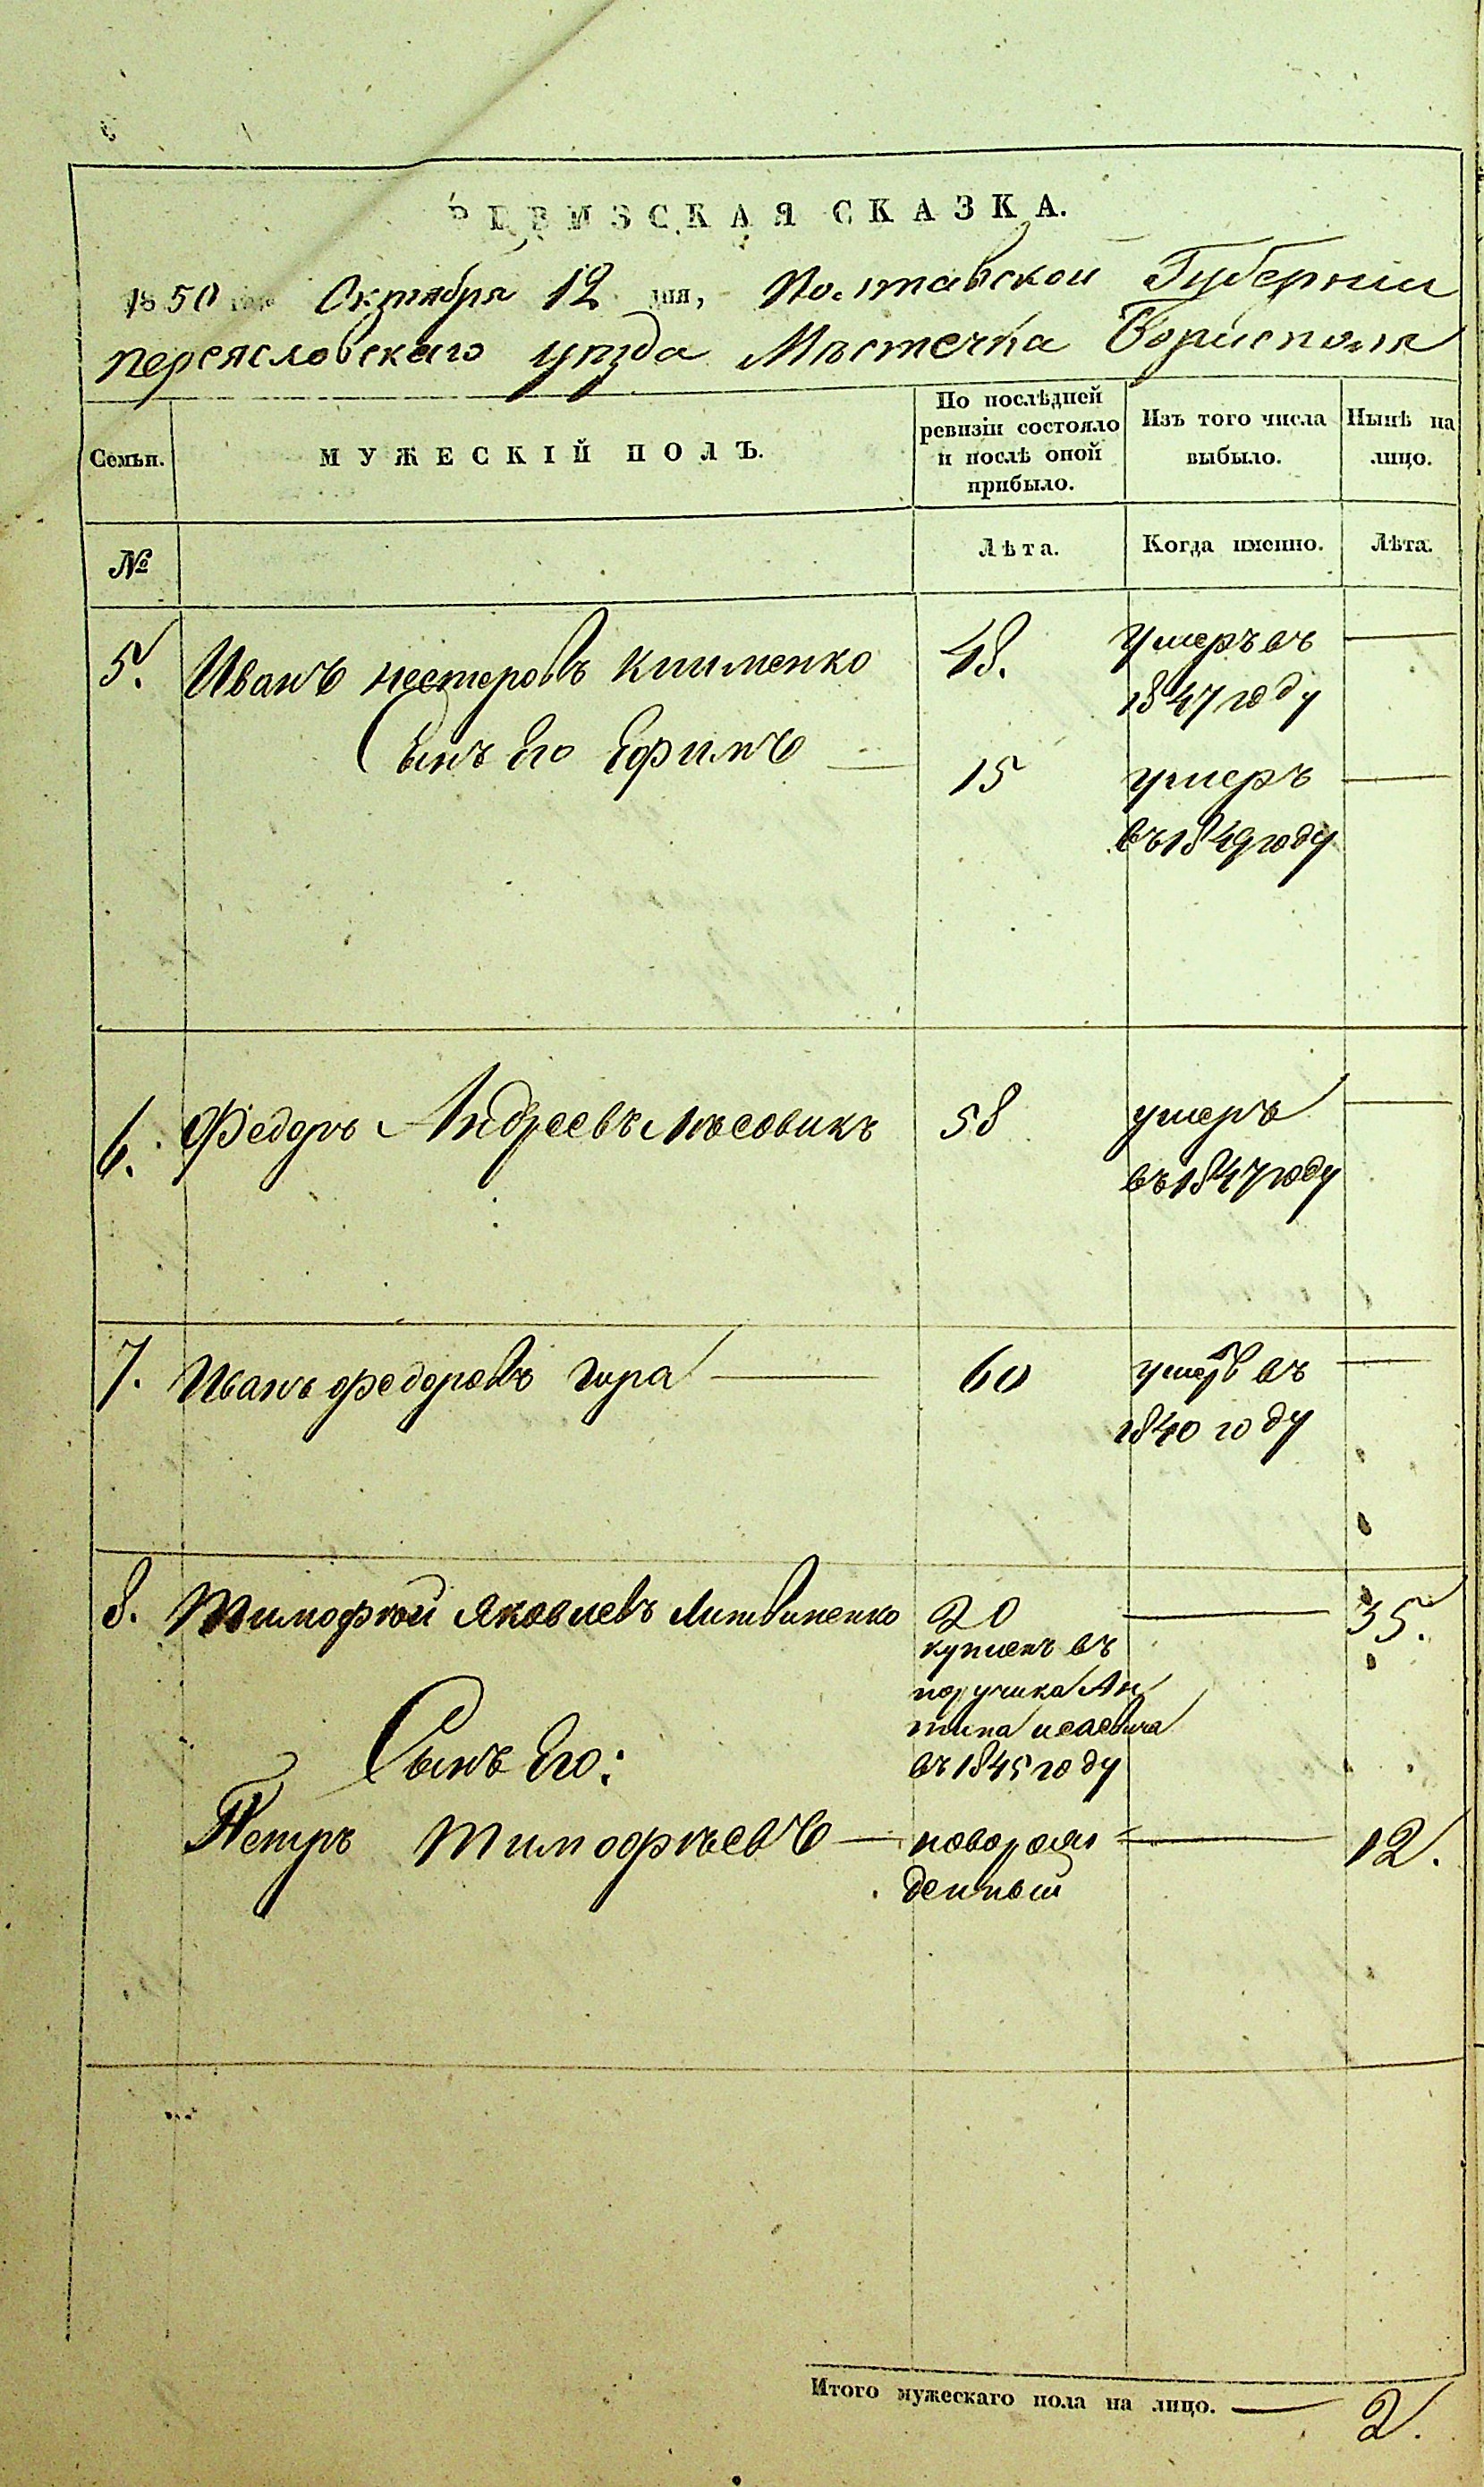 РЕВИЗСКАЯ СКАЗКА.
1850 года Октября 12 дня, Полтавской Губернии
Переясловскаго уѣзда Мѣстечка Борисполя
Семьи.
МУЖЕСКІЙ ПОЛЪ.
По послѣдней
ревизіи состояло
и послѣ оной
прибыло.
Изъ того числа
выбыло.
Нынѣ на
лицо.
№
Лѣта.
Когда именно.
Лѣта.
5. Иванъ Нестеровъ Клименко 48. Умеръ въ —
1847 году
Сынъ Его Ефимъ — 15 умеръ —
въ 1849 году
6. Федоръ Андреевъ Лѣсовикъ 58 умеръ —
въ 1847 году
7. Иванъ Федоровъ Гира — 60 умеръ въ —
1840 году
8. Тимофѣй Яковлевъ Литвиненко 20 — 35.
купленъ въ
поручика Ан
типа Исаевича
въ 1845 году
Сынъ Его:
Петръ Тимофѣевъ — новорож — 12.
денный
Итого мужескаго пола на лицо. — 2.